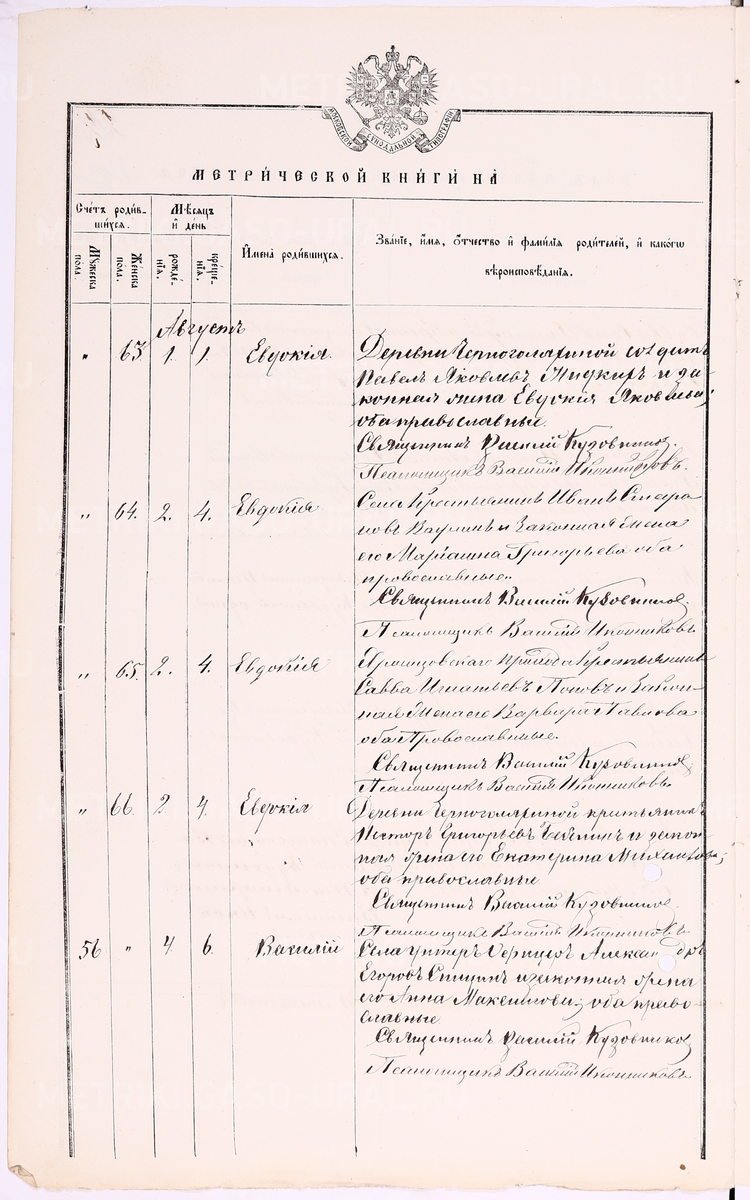 МОСКОВСКОЙ СУНОДАЛЬНОЙ ТИПОГРАФІИ
МЕТРИ́ЧЕСКОЙ КНИ́ГИ НА̀
Сче́тъ роди́в-
ши́хся.
Мѣ́сяцъ
и҆ де́нь
Мꙋ́жеска
пола.
Же́нска
пола.
рожде́-
нїѧ.
креще́-
нїѧ.
И҆мена̀ роди́вшихсѧ.
Зва́нїе, и҆́мѧ, ѻ҆́тчество и҆ фами́лїѧ роди́телей, и҆ како́гѡ
вѣроисповѣ́данїѧ.
Августъ
" 63 1. 1. Евдокія. Деревни Черноголяшной солдатъ
Павелъ Яковлевъ и за-
конная жена Евдокія Яковлева;
оба православные.
Священникъ Василій Кузовников.
Псаломщикъ Василій Иконниковъ.
" 64. 2. 4. Евдокія Села Крестьянинъ Иванъ
и Законная жена
его Маріанна Григорьева оба
провославные.
Священникъ Василій Кузовников.
Псаломщикъ Василій Иконниковъ
" 65. 2. 4. Евдокія прихода Крестьянинъ
Савва Игнатьевъ Поповъ и Закон-
ная Жена его Варвара Павлова
оба Православные.
Священникъ Василій Кузовников.
Псаломщикъ Василій Иконниковъ
" 66. 2 4. Евдокія Деревни Черноголяшной
Несторъ Григорьевъ и закон-
ная жена его Екатерина Михаилова;
оба православные
Священникъ Василій Кузовников.
Псаломщикъ Василій Иконниковъ
56 " 4 6. Василій Села Александръ
Егоровъ Спицинъ и законная жена
его Анна Максимова; оба право-
славные
Священникъ Василій Кузовников
Псаломщикъ Василій Иконниковъ